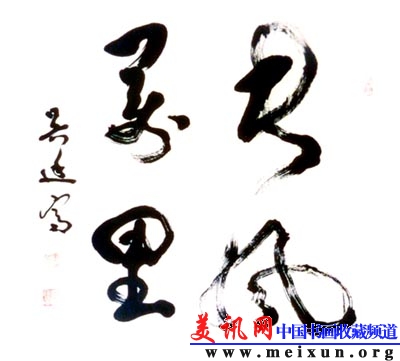 長風
萬里
吴廷富
美讯网 中国书画收藏频道
www.meixun.org